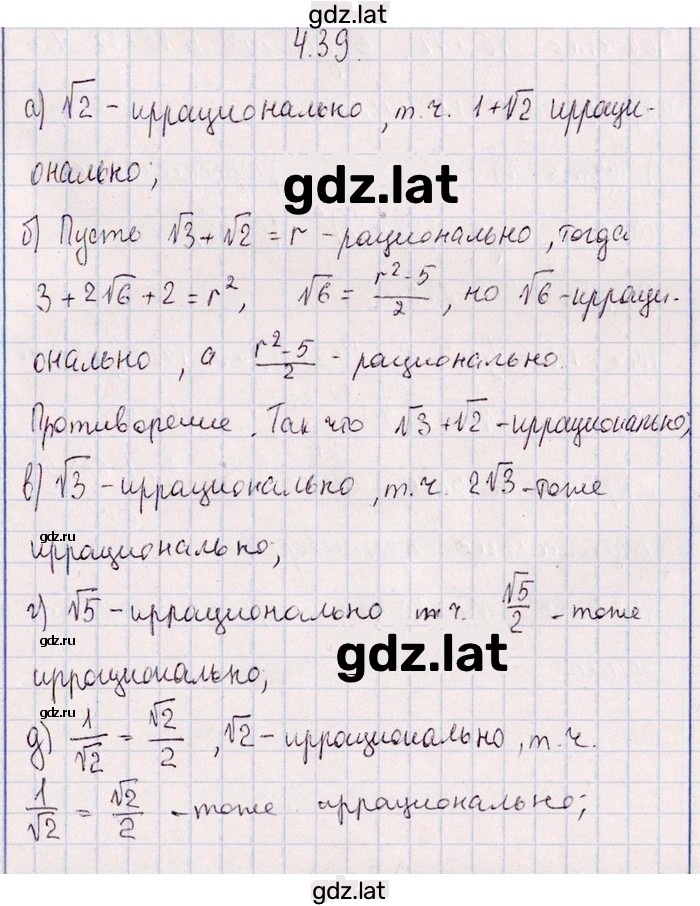 gdz.lat
4.39.
а) √2 - иррационально, т.ч. 1+√2 ирраци-
онально;
gdz.lat
б) Пусть √3 + √2 = r - рационально, тогда
3 + 2√6 + 2 = r², √6 = (r² - 5)/2, но √6 - ирраци-
онально, а (r² - 5)/2 - рационально.
Противоречие. Так что √3 + √2 - иррационально;
в) √3 - иррационально, т.ч. 2√3 - тоже
gdz.ru
иррационально;
г) √5 - иррационально т.ч. √5/2 - тоже
gdz.ru
gdz.lat
иррационально;
gdz.ru
д) 1/√2 = √2/2, √2 - иррационально, т.ч.
1/√2 = √2/2 - тоже иррационально;
gdz.lat